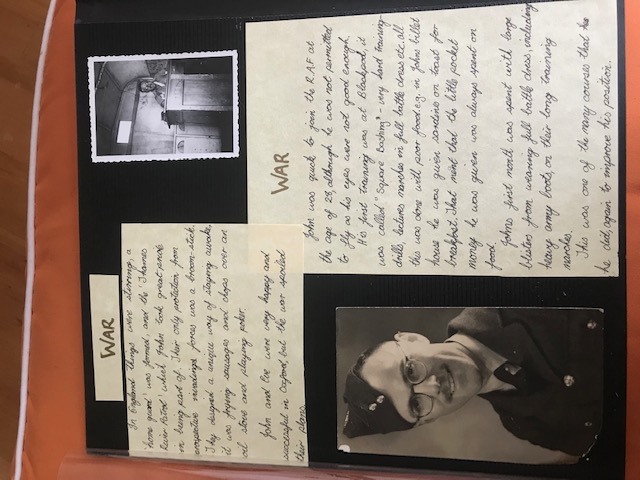 WAR
In England things were stirring, a
'home guard' was formed, and the 'Thames
River Patrol' which John took great pride
in being part of. Their only protection from
prospective invadings forces was a broom-stick.
They designed a unique way of staying awake,
it was frying sausages and chops over an
oil stove and playing poker.
John and Eve were very happy and
successful in Oxford, but the war spoiled
their plans.
WAR
John was quick to join the R.A.F at
the age of 28, although he was not permitted
to fly as his eyes were not good enough.
His first training was at Blackpool, it
was called "Square Bashing" - very hard training-
drills, lectures marches in full battle dress etc. all
this was done with poor food. e.g. in Johns billet
house he was given sardine on toast for
breakfast. That ment that the little pocket
money he was given was always spent on
food.
Johns first month was spent with large
blisters from wearing full battle dress, including
heavy army boots, on their long training
marches.
This was one of the many courses that
he did, again to improve his position.